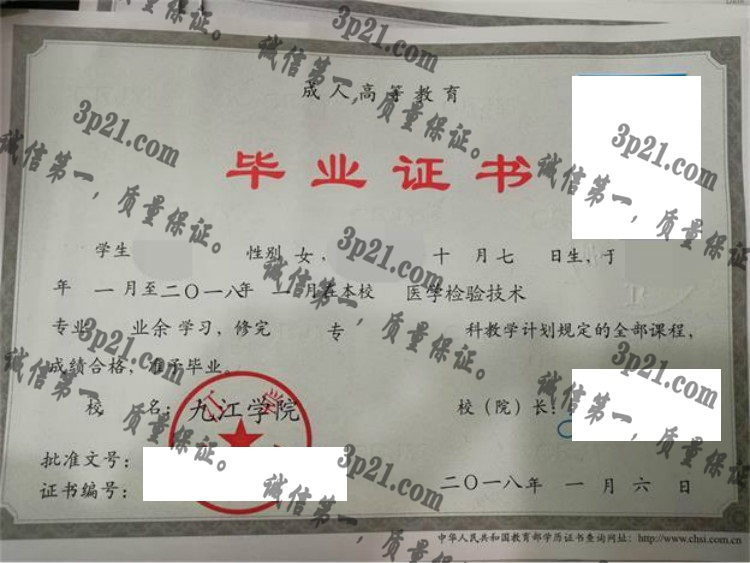 成人高等教育
毕业证书
学生 性别 女， 十 月七 日生，于
年 一 月至二〇一八年 一 月在本校 医学检验技术
专业 业余 学习，修完 专 科教学计划规定的全部课程，
成绩合格，准予毕业。
校 名：九江学院 校（院）长：
批准文号：
证书编号： 二〇一八年 一 月 六 日
中华人民共和国教育部学历证书查询网址：http://www.chsi.com.cn
3p21.com
诚信第一，质量保证。
3p21.com
诚信第一，质量保证。
3p21.com
诚信第一，质量保证。
3p21.com
诚信第一，质量保证。
3p21.com
诚信第一，质量保证。
3p21.com
诚信第一，质量保证。
3p21.com
诚信第一，质量保证。
3p21.com